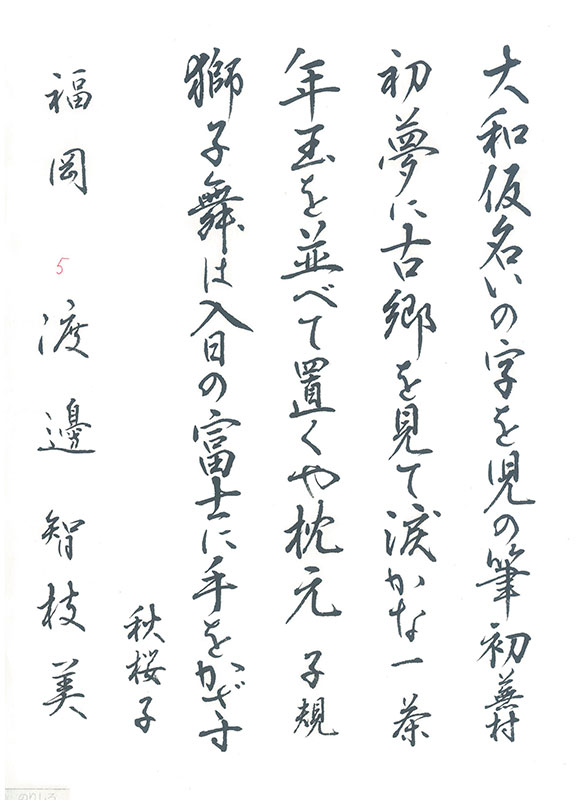 大和仮名いの字を児の筆初 蕪村
初夢に古郷を見て涙かな 一茶
年玉を並べて置くや枕元 子規
獅子舞は入日の富士に手をかざす
秋桜子
福岡 5 渡邊 智枝美
のりしろ